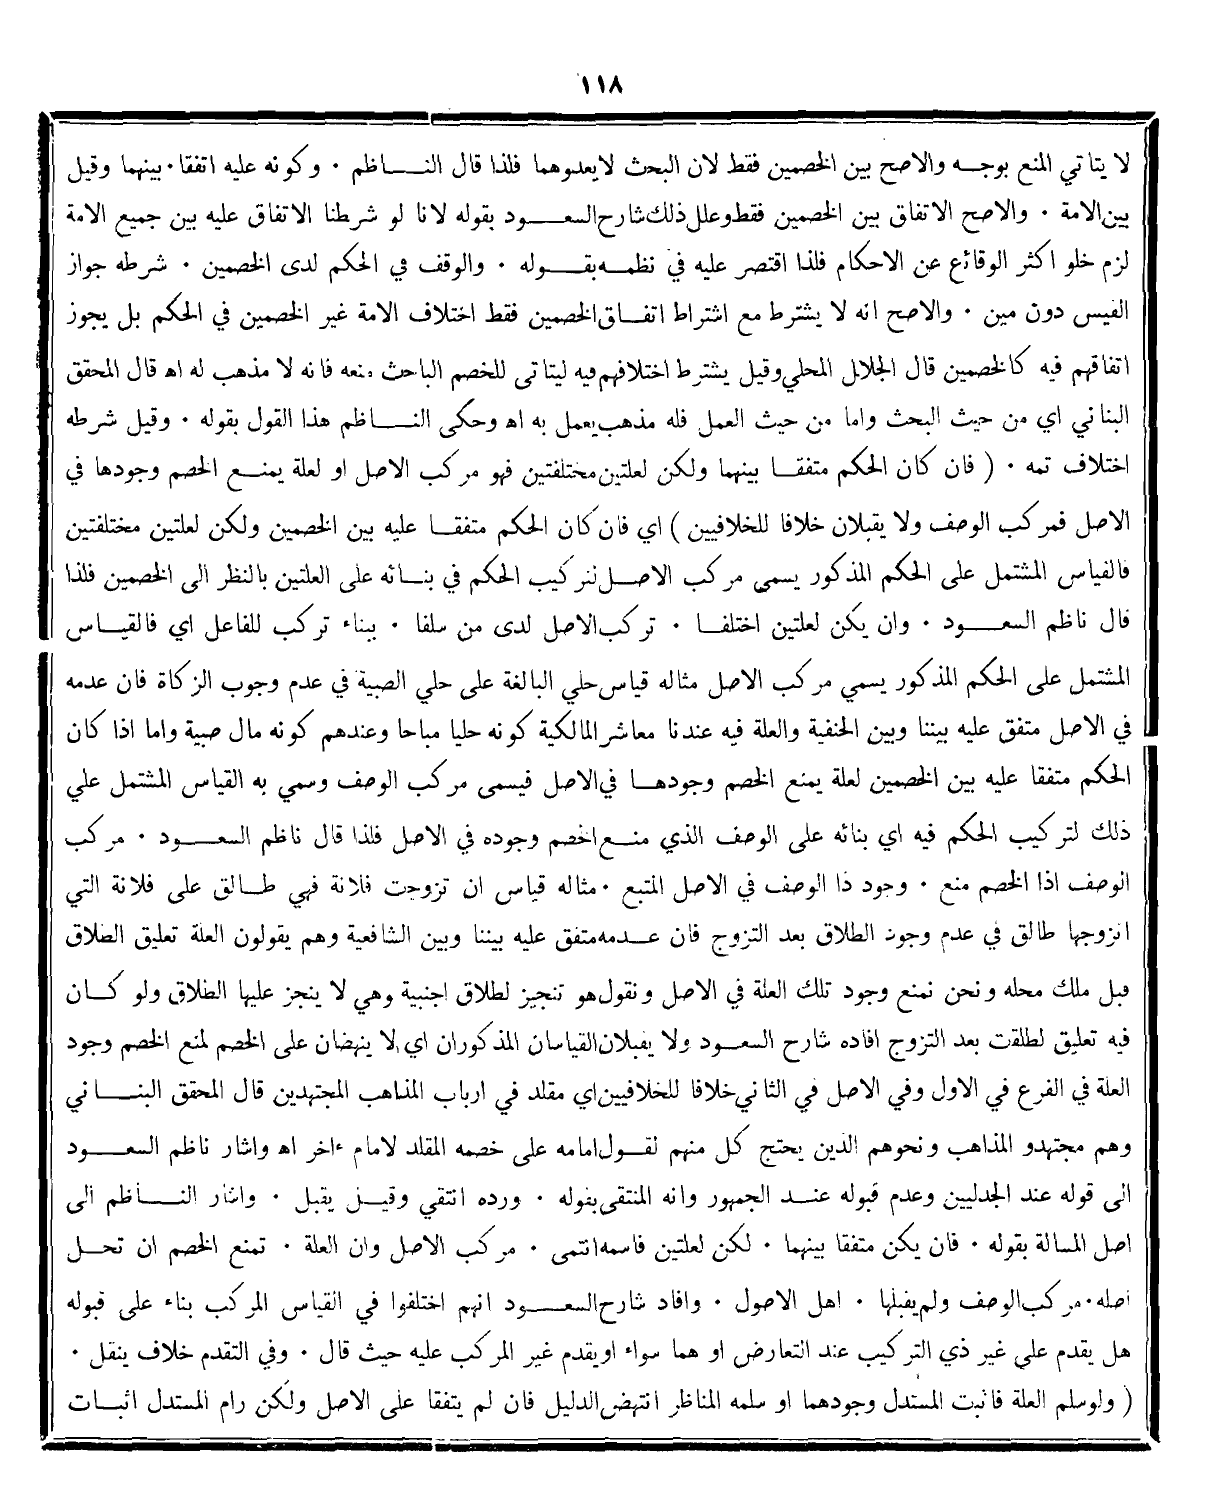 ١١٨
لا يتاتي المنع بوجه والاصح بين الخصمين فقط لان البحث لايعدوهما فلذا قال الناظم ٠ وكونه عليه اتفقا ٠ بينهما وقيل
بين الامة ٠ والاصح الاتفاق بين الخصمين فقط وعلل ذلك شارح السعود بقوله لانا لو شرطنا الاتفاق عليه بين جميع الامة
لزم خلو اكثر الوقائع عن الاحكام فلذا اقتصر عليه في نظمه بقوله ٠ والوقف في الحكم لدى الخصمين ٠ شرطه جواز
القيس دون مين ٠ والاصح انه لا يشترط مع اشتراط اتفاق الخصمين فقط اختلاف الامة غير الخصمين في الحكم بل يجوز
اتفاقهم فيه كالخصمين قال الجلال المحلي وقيل يشترط اختلافهم فيه ليتاتى للخصم الباحث منعه فانه لا مذهب له اه قال المحقق
البناني اي من حيث البحث واما من حيث العمل فله مذهب يعمل به اه وحكى الناظم هذا القول بقوله ٠ وقيل شرطه
اختلاف تمه ٠ ( فان كان الحكم متفقا بينهما ولكن لعلتين مختلفتين فهو مركب الاصل او لعلة يمنع الخصم وجودها في
الاصل فمركب الوصف ولا يقبلان خلافا للخلافيين ) اي فان كان الحكم متفقا عليه بين الخصمين ولكن لعلتين مختلفتين
فالقياس المشتمل على الحكم المذكور يسمى مركب الاصل لتركيب الحكم في بنائه على العلتين بالنظر الى الخصمين فلذا
قال ناظم السعود ٠ وان يكن لعلتين اختلفا ٠ تركب الاصل لدى من سلفا ٠ ببناء تركب للفاعل اي فالقياس
المشتمل على الحكم المذكور يسمي مركب الاصل مثاله قياس حلي البالغة على حلي الصبية في عدم وجوب الزكاة فان عدمه
في الاصل متفق عليه بيننا وبين الحنفية والعلة فيه عندنا معاشر المالكية كونه حليا مباحا وعندهم كونه مال صبية واما اذا كان
الحكم متفقا عليه بين الخصمين لعلة يمنع الخصم وجودها في الاصل فيسمى مركب الوصف وسمي به القياس المشتمل علي
ذلك لتركيب الحكم فيه اي بنائه على الوصف الذي منع الخصم وجوده في الاصل فلذا قال ناظم السعود ٠ مركب
الوصف اذا الخصم منع ٠ وجود ذا الوصف في الاصل المتبع ٠ مثاله قياس ان تزوجت فلانة فهي طالق على فلانة التي
اتزوجها طالق في عدم وجود الطلاق بعد التزوج فان عدمه متفق عليه بيننا وبين الشافعية وهم يقولون العلة تعليق الطلاق
قبل ملك محله ونحن نمنع وجود تلك العلة في الاصل ونقول هو تنجيز لطلاق اجنبية وهي لا ينجز عليها الطلاق ولو كان
فيه تعليق لطلقت بعد التزوج افاده شارح السعود ولا يقبلان القياسان المذكوران اي لا ينهضان على الخصم لمنع الخصم وجود
العلة في الفرع في الاول وفي الاصل في الثاني خلافا للخلافيين اي مقلد في ارباب المذاهب المجتهدين قال المحقق البناني
وهم مجتهدو المذاهب ونحوهم الذين يحتج كل منهم لقول امامه على خصمه المقلد لامام ءاخر اه واشار ناظم السعود
الى قوله عند الجدليين وعدم قبوله عند الجمهور وانه المنتقى بقوله ٠ ورده انتقي وقيل يقبل ٠ واشار الناظم الى
اصل المسالة بقوله ٠ فان يكن متفقا بينهما ٠ لكن لعلتين فاسمه انتمى ٠ مركب الاصل وان العلة ٠ تمنع الخصم ان تحل
اصله ٠ مركب الوصف ولم يقبلها ٠ اهل الاصول ٠ وافاد شارح السعود انهم اختلفوا في القياس المركب بناء على قبوله
هل يقدم علي غير ذي التركيب عند التعارض او هما سواء او يقدم غير المركب عليه حيث قال ٠ وفي التقدم خلاف ينقل ٠
( ولو سلم العلة فاثبت المستدل وجودهما او سلمه المناظر انتهض الدليل فان لم يتفقا على الاصل ولكن رام المستدل اثبات